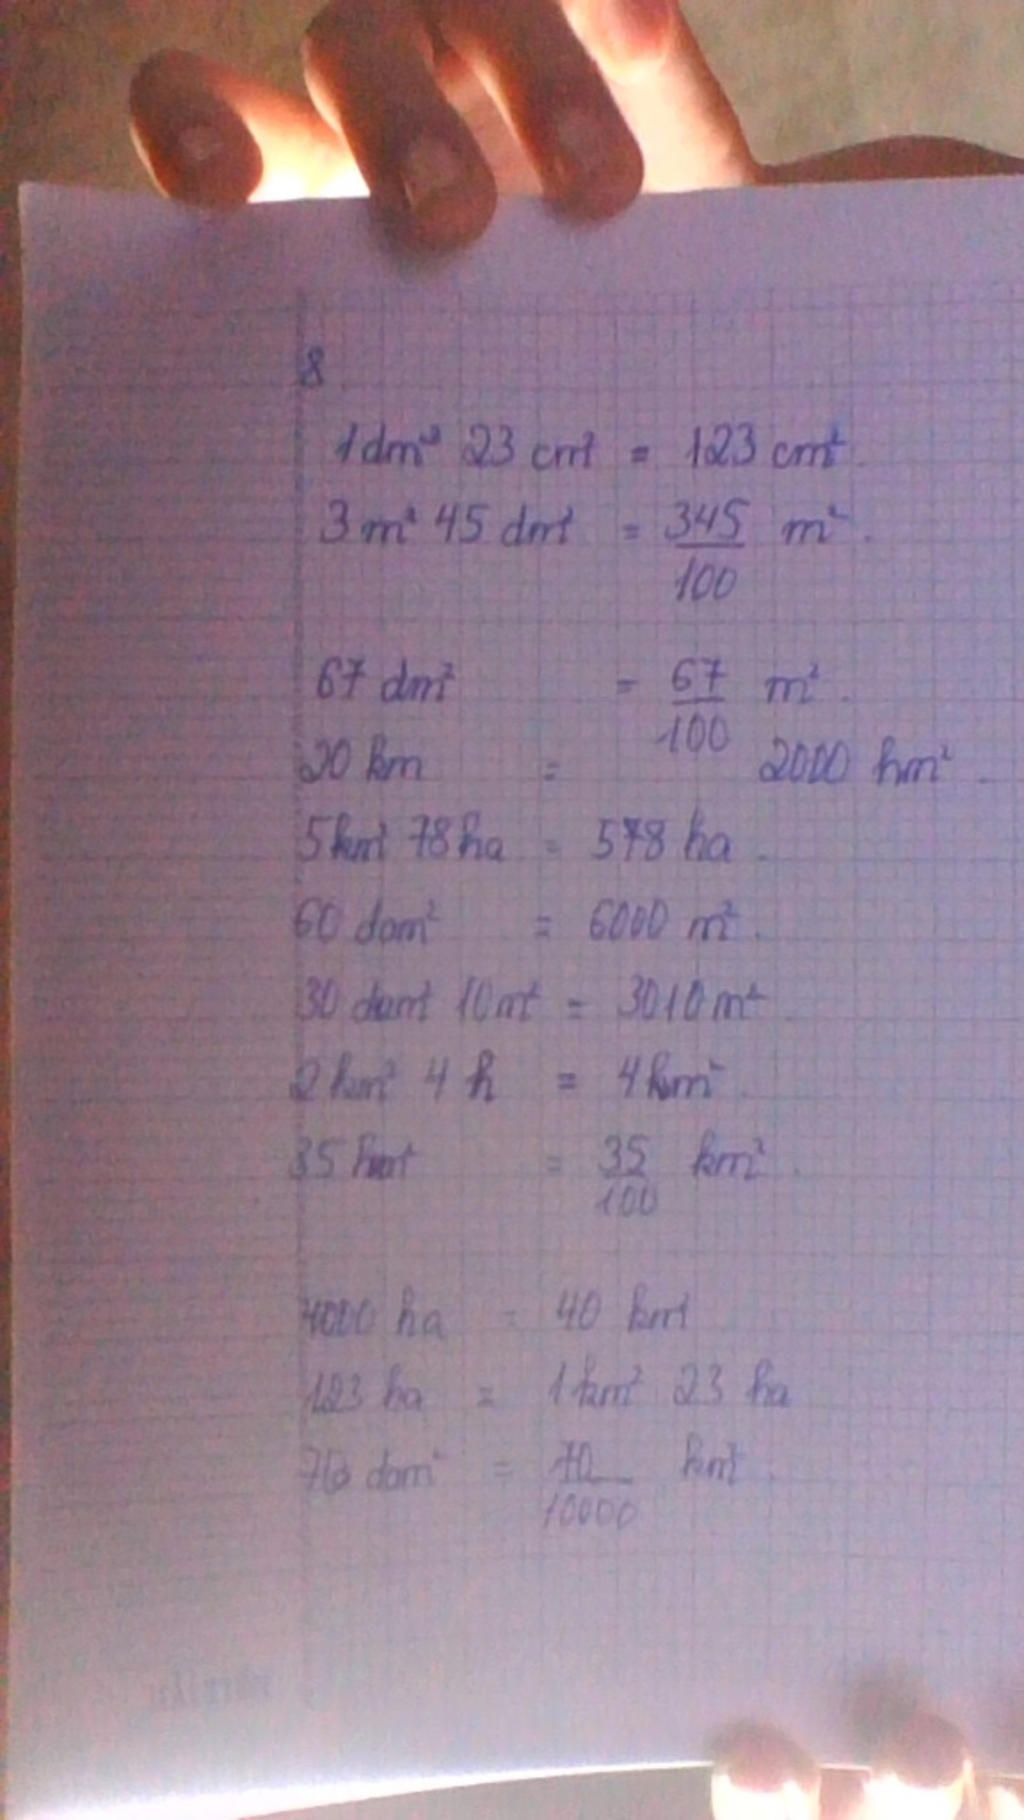 8
1 dm² 23 cm² = 123 cm².
3 m² 45 dm² = 345/100 m².
67 dm² = 67/100 m².
20 km = 2000 hm².
5 km² 78 ha = 578 ha.
60 dam² = 6000 m².
30 dam² 10 m² = 3010 m²
2 km² 4 h = 4 km².
35 hm² = 35/100 km².
4000 ha = 40 km²
123 ha = 1 km² 23 ha
dam² = /10000 km².